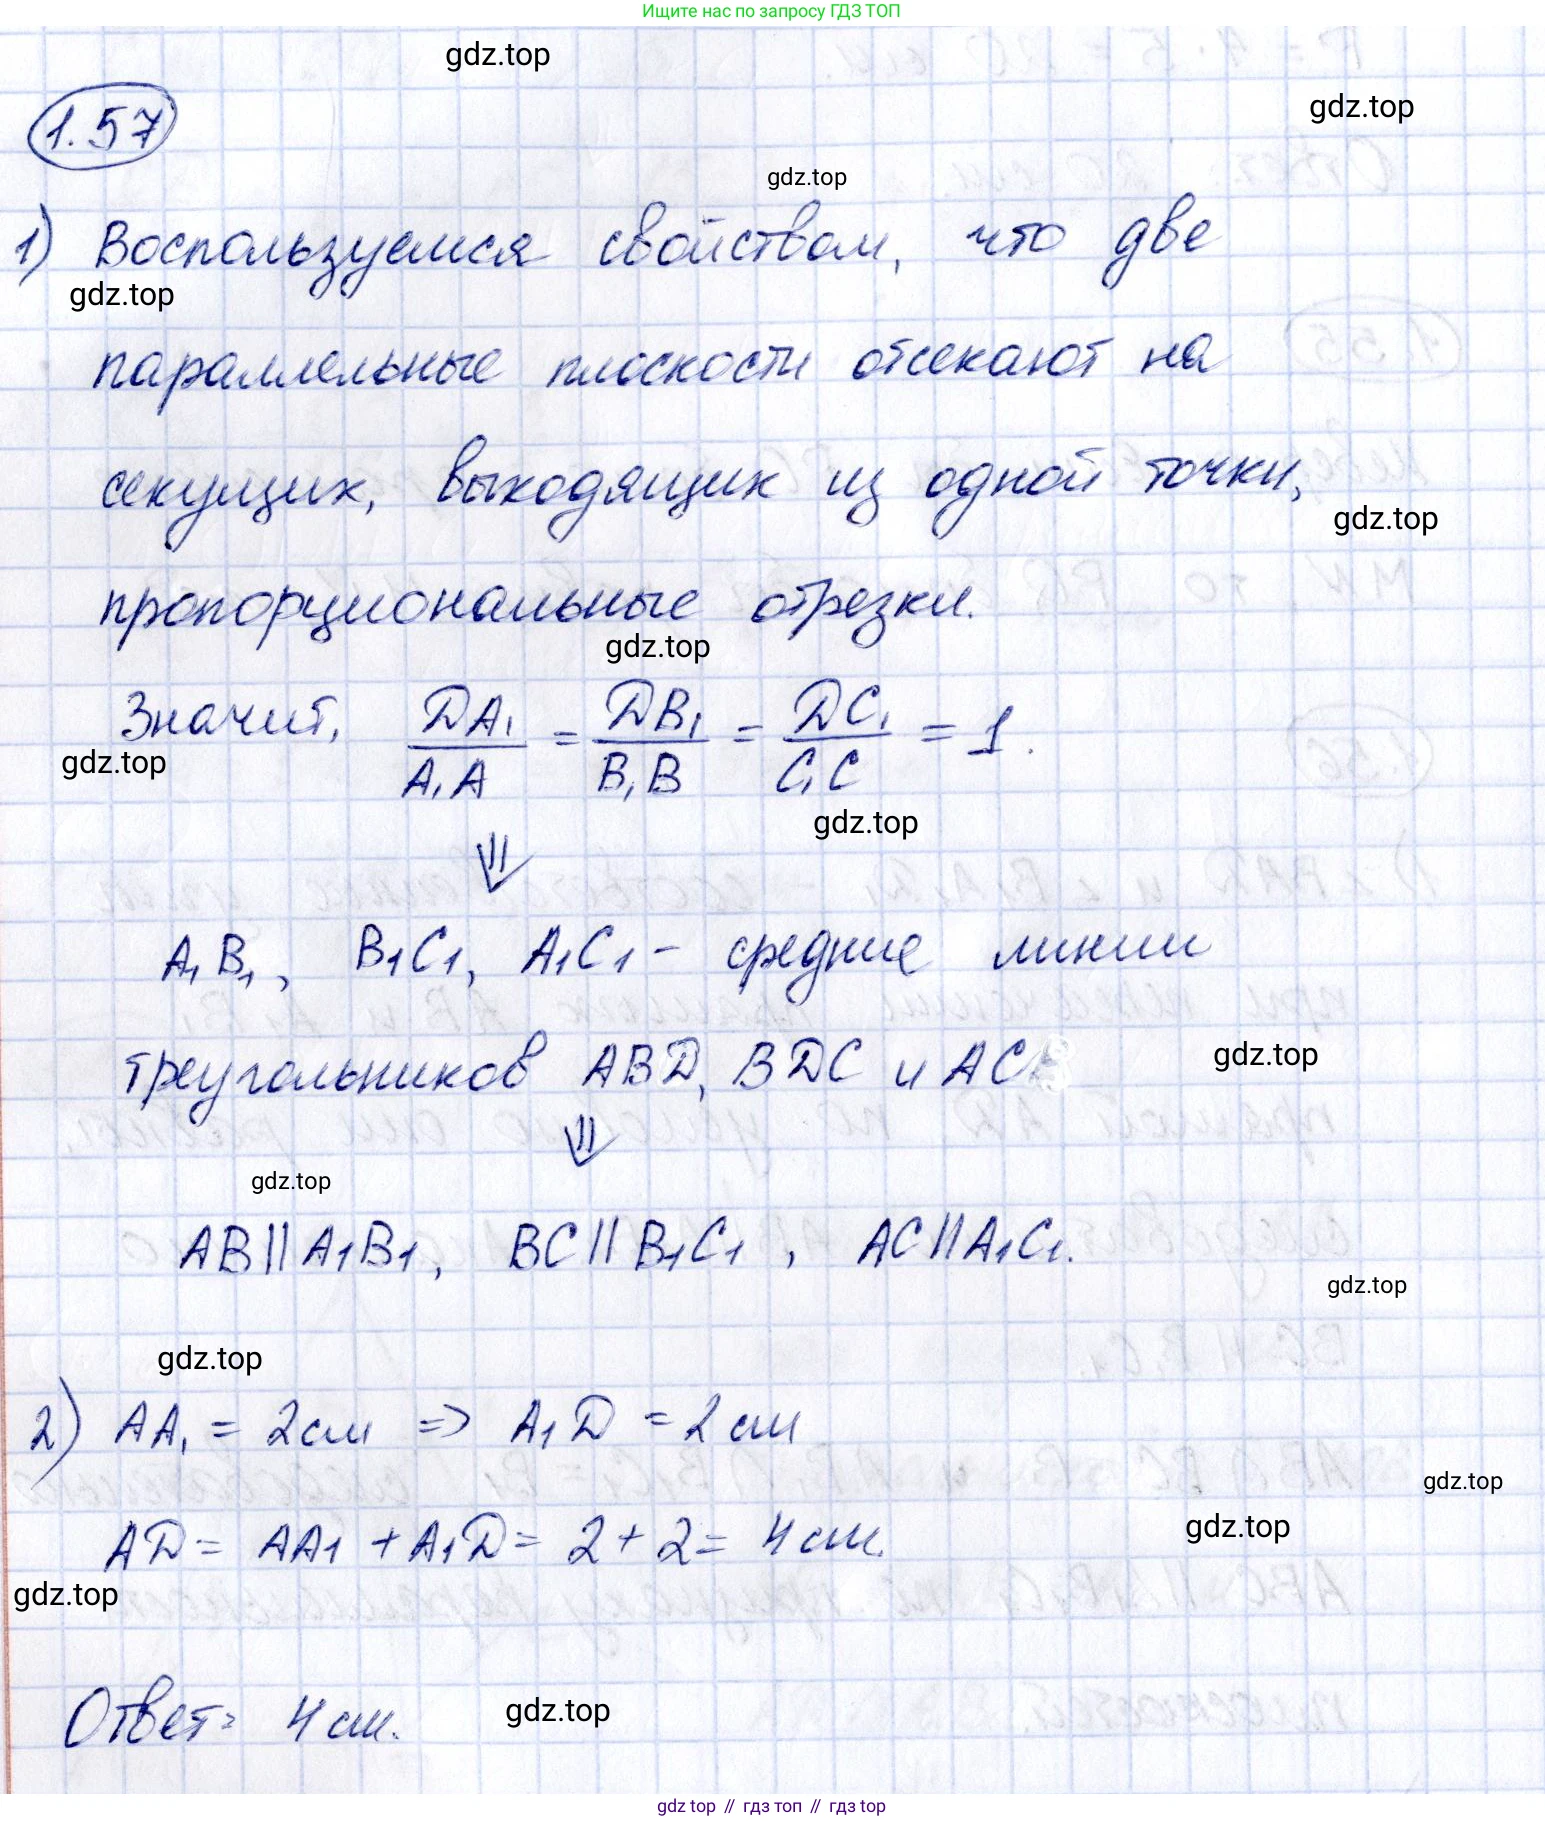 Ищите нас по запросу ГДЗ ТОП
gdz.top
gdz.top
1.57
gdz.top
1) Воспользуемся свойством, что две
gdz.top
параллельные плоскости отсекают на
секущих, выходящих из одной точки,
gdz.top
пропорциональные отрезки.
gdz.top
Значит, DA₁/A₁A = DB₁/B₁B = DC₁/C₁C = 1.
gdz.top
gdz.top
⇓
A₁B₁, B₁C₁, A₁C₁ - средние линии
треугольников ABD, BDC и AC
gdz.top
⇓
gdz.top
AB∥A₁B₁, BC∥B₁C₁, AC∥A₁C₁.
gdz.top
gdz.top
2) AA₁ = 2см => A₁D = 2 см
gdz.top
gdz.top
AD = AA₁ + A₁D = 2 + 2 = 4 см.
gdz.top
Ответ: 4 см.
gdz.top
gdz top // гдз топ // gdz top